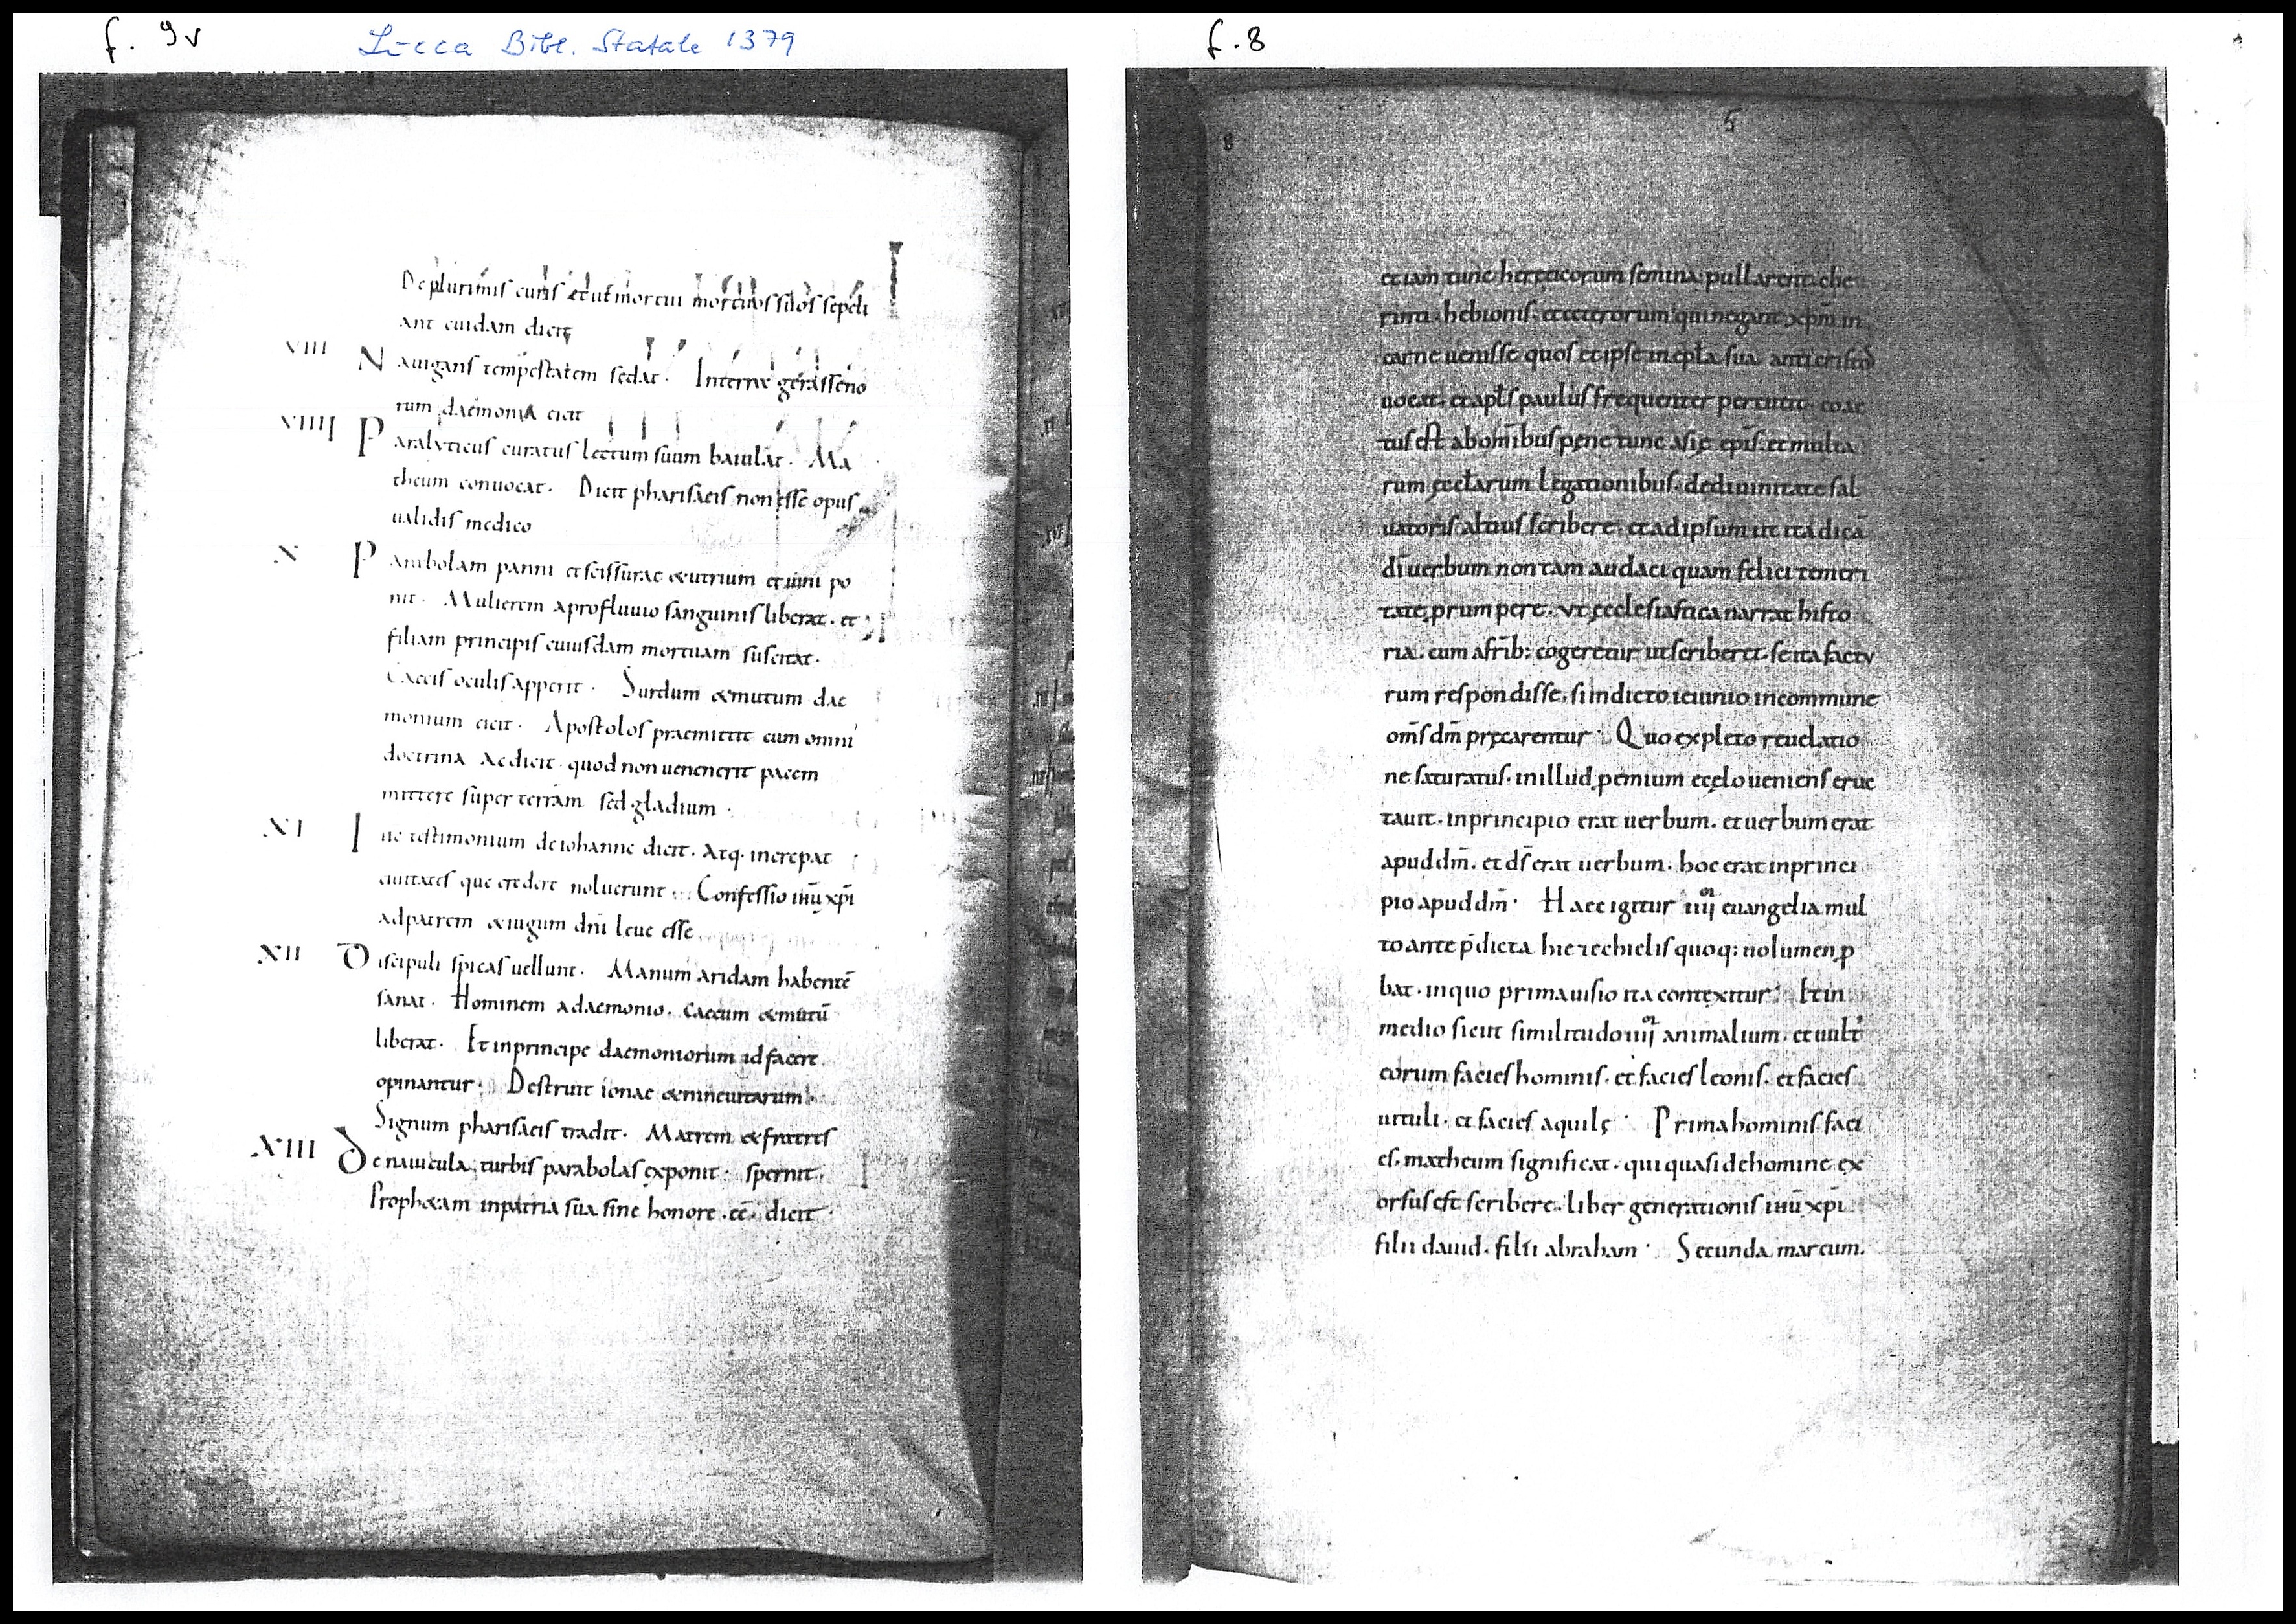 f. 9v
Lucca Bibl. Statale 1379
De plurimis curis et ut mortui mortuos suos sepeli
ant cuidam dicit
VIII N auigans tempestatem sedat · Interræ gerasseno
rum daemonia eicit
VIIII P aralyticus curatus lectum suum baiulat · Ma
theum conuocat · Dicit pharisaeis non esse opus
ualidis medico
X P arabolam panni et scissurae &utrium et uini po
nit · Mulierem aprofluuio sanguinis liberat · et
filiam principis cuiusdam mortuam suscitat ·
Caecis oculis apperit · Surdum &mutum dae
monium eicit · Apostolos praemittit cum omni
doctrina Ac dicit · quod non uenenerit pacem
mittere super terram sed gladium ·
XI I ne testimonium de iohanne dicit · Atq· increpat
ciuitates que credere noluerunt · Confessio ihū xpī
ad patrem &iugum dnī leue esse
XII D iscipuli spicas uellunt · Manum aridam habentē
sanat · Hominem adaemonio · caecum &mutū
liberat · Et inprincipe daemoniorum id facere
opinantur · Destruit ionae &nineuitarum
Signum pharisaeis tradit · Matrem &fratres
XIII D e nauicula turbis parabolas exponit · spernit ·
Proph&am inpatria sua sine honore · eē · dicit ·
f. 8
8
5
etiam tunc heręticorum semina pullarent che
rinti · hebionis · et ceterorum qui negant xp̄m in
carne uenisse quos et ipse in epłā sua anticristos
uocat · et apłs paulus frequenter percutit · coac
tus est abom̄ibus pene tunc asię epīs · et multa
rum ęcclarum legationibus · dediuinitate sal
uatoris altius scribere · et adipsum ut ita dicā
dī uerbum non tam audaci quam felici temeri
tate prumpere · vt ęcclesiastica narrat histo
ria · cum afrīb: cogeretur ut scriberet · se ita factu
rum respondisse · si indicto ieiunio incommune
om̄s dm̄ pręcarentur · Quo expleto reuelatio
ne saturatus · inillud pemium ecęlo ueniens eruc
tauit · inprincipio erat uerbum · et uerbum erat
apud dm̄ · et ds̄ erat uerbum · hoc erat inprinci
pio apud dm̄ · Haec igitur iiij euangelia mul
to ante p̄dicta hiezechielis quoq: uolumen p
bat · inquo prima uisio ita contexitur · Et in
medio sicut similitudo iiij animalium · et uult'
eorum facies hominis · et facies leonis · et facies
uituli · et facies aquilę · Prima hominis faci
es · matheum significat · qui quasi dehomine ex
orsus est scribere · liber generationis ihū xpī
filii dauid · filii abraham · Secunda marcum ·